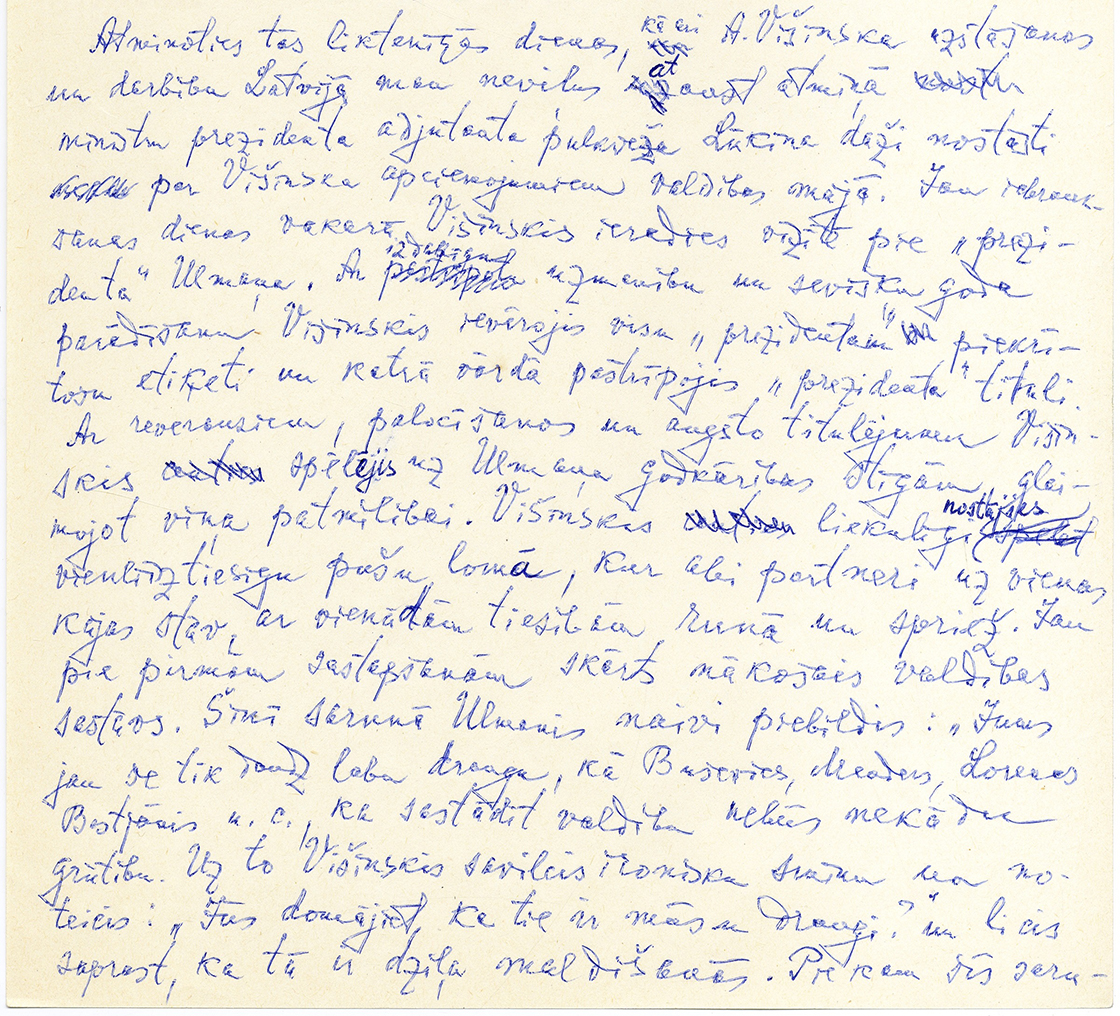 Atminoties tās liktenīgās dienas, kā arī A. Višinska uzstāšanos
un darbību Latvijā man nevilus ataust atmiņā
ministru prezidenta adjutanta pulkveža Lūkina daži nostāsti
par Višinska apciemojumiem valdības mājā. Jau iebrauk-
šanas dienas vakarā Višinskis ieradies vizītē pie „prezi-
denta" Ulmaņa. Ar izdabīgu uzmanību un sevišķu goda
parādīšanu Višinskis ievērojis visu „prezidentam" piekrī-
tošu etiķeti un katrā vārdā pastrīpojis „prezidenta" tituli.
Ar reveransiem, palocīšanos un augsto titulējumu Višin-
skis spēlējis uz Ulmaņa godkārības stīgām, glai-
mojot viņa patmīlībai. Višinskis liekulīgi nostājies
vienlīdztiesīgu pušu lomā, kur abi partneri uz vienas
kājas stāv, ar vienādām tiesībām runā un spriež. Jau
pie pirmām sastapšanām skārts nākošais valdības
sastāvs. Šinī sarunā Ulmanis naivi piebildis: „Jums
jau te tik daudz labu draugu, kā Buševics, Menders, Lorencs
Bastjānis u. c., ka sastādīt valdību nebūs nekādu
grūtību. Uz to Višinskis savilcis ironisku smīnu un no-
teicis: „Jūs domājat, ka tie ir mūsu draugi?" un licis
saprast, ka tā ir dziļa maldīšanās. Pie kam šīs saru-